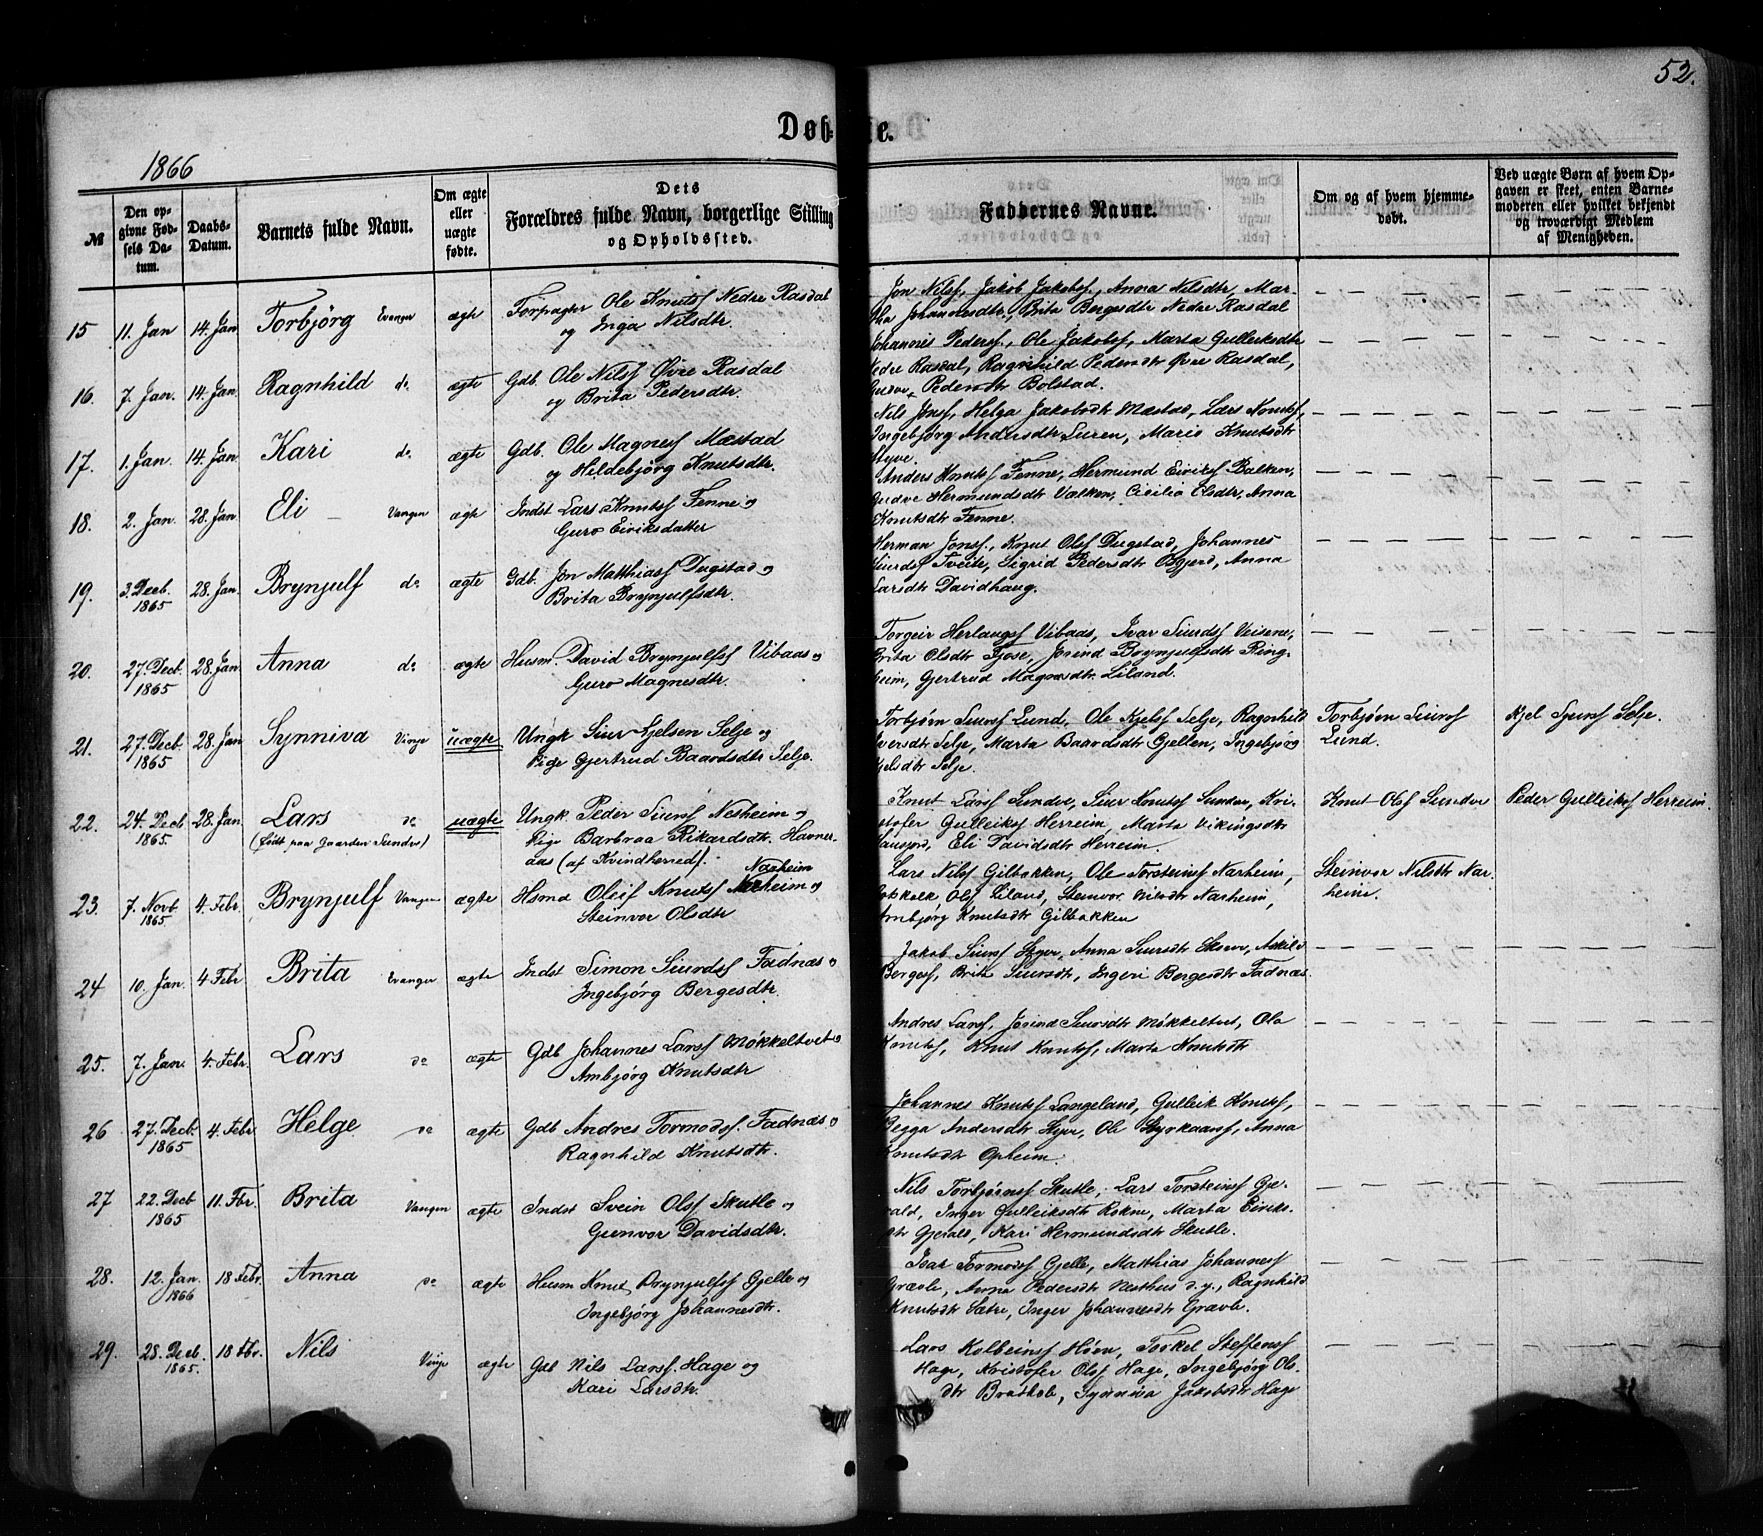 52.
Døb- e.
1866
№
Den opgivne Fødsels Datum.
Daabs-Datum.
Barnets fulde Navn.
Om ægte eller uægte fødte.
Dets Forældres fulde Navn, borgerlige Stilling og Opholdssted.
Faddernes Navne.
Om og af hvem hjemmedøbt.
Ved uægte Børn af hvem Opgaven er skeet, enten Barnemoderen eller hvilket bekjendt og troværdigt Medlem af Menigheden.
15 11. Jan 14. Jan Torbjörg Evanger ægte Forpagter Ole Knutsf Nedre Rasdal
og Inga Nilsdtr.
Jon Nilsf, Jakob Jakobsf, Anna Nilsdtr, Mar-
tha Johannesdtr, Brita Bergesdtr Nedre Rasdal
16. 7. Jan. 14. Jan Ragnhild do ægte Gdb. Ole Nilsf Øvre Rasdal
og Brita Pedersdtr.
Johannes Pedersf., Ole Jakobsf, Marta Gulleiksdtr
Nedre Rasdal, Ragnhild Pedersdtr Øvre Rasdal,
Pedersdtr Bolstad.
17. 1. Jan. 14. Jan Kari do ægte Gdb. Ole Magnesf Mæstad
og Hildebjörg Knutsdtr.
Nils Jonsf, Helga Jakobsdtr Mæstad, Lars Knutsf,
Ingebjörg Andersdtr Luren, Mario Knutsdtr
18. 2. Jan. 28. Jan Eli Vangen ægte Indst Lars Knutsf Fenne og
Guro Eiriksdatter
Anders Knutsf Fenne, Hermund Eiriksf Balken,
Hermundsdtr Valken, Cicilia Olsdtr, Anna
Knutsdtr Fenne.
19. 3. Decb. 1865 28. Jan. Brynjulf do ægte Gdb. Jon Matthiasf Dugstad og
Brita Brynjulfsdtr.
Herman Jonsf., Knut Olsf Dugstad, Johannes
Siurdsf Tveite, Sigrid Pedersdtr Øgjerd, Anna
Larsdtr Davidhaug.
20. 27. Decb. 1865 28. Jan Anna do ægte Husm. David Brynjulfsf Vibaas og
Guro Magnesdtr.
Torgeir Herlaugsf Vibaas, Ivar Siurdsf Veisene,
Brita Olsdtr Fjose, Jorind Brynjulfsdtr Ring-
heim, Gjertrud Magnesdtr Liland.
21. 27. Decb. 1865 28. Jan Synniva Vinje uægte Ungk Siur Kjelsen Selje og
Pige Gjertrud Baardsdtr Selje.
Torbjørn Siursf Lund, Ole Kjelsf Selje, Ragnhild
Iversdtr Selje, Marta Baardsdtr Gjellen, Ingebjörg
Kjelsdtr Selje.
Torbjørn Siursf
Lund.
Kjel Sjursf Selje.
22. 24. Decb 1865. 28. Jan. Lars do uægte Ungk. Peder Siursf Nesheim og
(født paa Gaarden Sundve)
Pige Barbraa Rikardsdtr. Havner-
aas (af Kvindherred).
Knut Larsf Sundve, Siur Knutsf Sundve, Kri-
stofer Gulleiksf Herreim, Marta Vikingsdtr
Eli Davidsdtr Herreim.
Knut Olsf Sundve
Peder Gulleiksf Herreim.
23. 7. Novb 1865. 4. Febr. Brynjulf Vangen ægte Hsmd Oleif Knutsf Narheim og
Narheim
Steinvor Olsdtr
Lars Nilsf Gilbakken, Ole Torsteinsf Narheim,
Olsf Liland, Steinvor Nilsdtr Narheim,
Ambjörg Knutsdtr Gilbakken
Steinvor Nilsdtr Nar-
heim.
24 10. Jan. 4 Febr Brita Evanger ægte Indst Simon Siurdsf Fadnæs og
Ingebjörg Bergesdtr.
Jakob Siursf Hyer, Anna Siursdtr Ekse, Askild
Bergesf, Brita Siursdtr, Ingeri Bergesdtr Fadnæs
25. 7. Jan. 4. Febr. Lars do ægte Gdb Johannes Larsf Møkkeltvet og
Ambjörg Knutsdtr
Andres Larsf, Jorind Siursdtr Møkkeltvet, Ola
Knutsf, Knut Knutsf, Marta Knutsdtr
26 27. Decb 1865 4. Febr Helge do ægte Gdb Andres Tormodsf. Fadnæs og
Ragnhild Knutsdtr.
Johannes Knutsf Langeland, Gulleik Knutsf,
Andersdtr Hyer, Ole Styrkaarsf, Anna
Knutsdtr Opheim.
27 22. Decb 1865 11. Fbr. Brita Vangen ægte Indst Svein Olsf Skutle og
Gunvor Davidsdtr.
Nils Torbjørnsf Skutle, Lars Torsteinsf Gje-
rald, Inger Gulleiksdtr Rokne, Marta Eiriks-
dtr Gjerald, Kari Hermundsdtr Skutle.
28. 12. Jan. 1866 18 Febr. Anna do ægte Husm Knut Brynjulfsf Gjelle og
Ingebjörg Johannesdtr.
Ivar Tormodsf Gjelle, Matthias Johannesf
Gravle, Anna Pedersdtr Nesthus d.y., Ragnhild
Knutsdtr Sætre, Inger Johannesdtr Gravle.
29. 28. Decb. 1865. 18 Fbr. Nils Vinje ægte Gdb Nils Larsf. Hage og
Kari Larsdtr.
Lars Kolbeinsf Høen, Torkel Steffensf
Hage, Kristofer Olsf Hage, Ingebjörg Ols-
dtr Bratkole, Synniva Jakobsdtr Hage